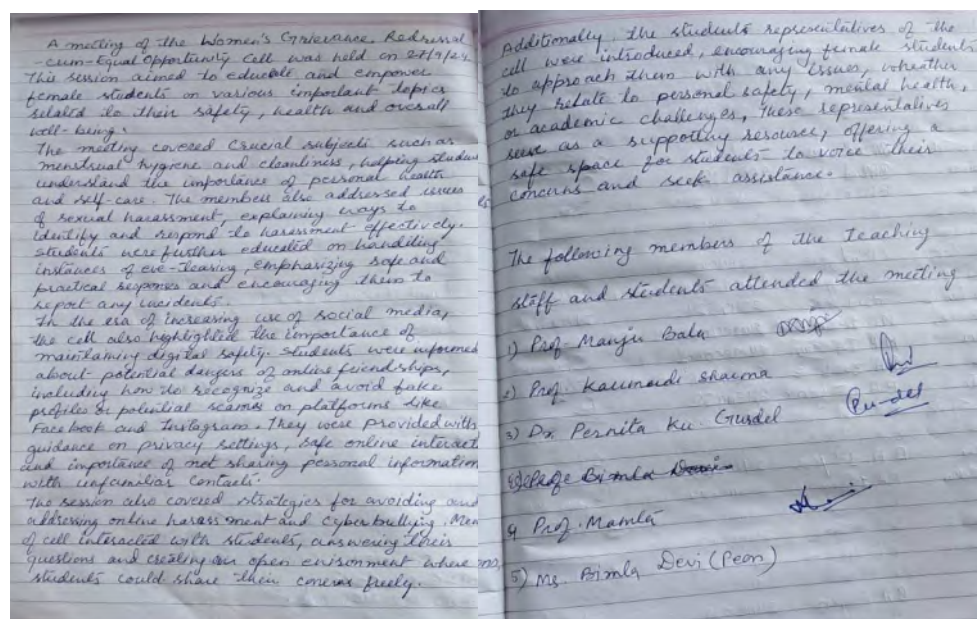 A meeting of the Women's Grievance Redressal
-cum-Equal Opportunity Cell was held on 27/9/24
This session aimed to educate and empower
female students on various important topics
related to their safety, health and overall
well-being.
The meeting covered crucial subjects such as
menstrual hygiene and cleanliness, helping studen
understand the importance of personal health
and self-care. The members also addressed issues
of sexual harassment, explaining ways to
identify and respond to harassment effectively.
Students were further educated on handling
instances of eve-teasing, emphasizing safe and
practical responses and encouraging them to
report any incidents.
In the era of increasing use of social media,
the cell also highlighted the importance of
maintaining digital safety. Students were informed
about potential dangers of online friendships,
including how to recognize and avoid fake
profiles & potential scams on platforms like
Facebook and Instagram. They were provided with
guidance on privacy settings, safe online interact
and importance of not sharing personal information
with unfamiliar contacts.
The session also covered strategies for avoiding and
addressing online harassment and cyberbullying. Mem
of cell interacted with students, answering their
questions and creating an open enironment where
students could share their concerns freely.
Additionally, the students representatives of the
cell were introduced, encouraging female students
to approach them with any issues, wheather
they relate to personal safety, mental health,
or academic challenges, These representatives
serve as a supporting resource, offering a
safe space for students to voice their
concerns and seek assistance.
The following members of the teaching
staff and students attended the meeting
1) Prof Manju Bala
2) Prof Kaumudi Sharma
3) Dr. Pernita Ku. Gurdel
Bimla Devi
4 Prof. Mamta
5) Ms. Bimla Devi (Peon)